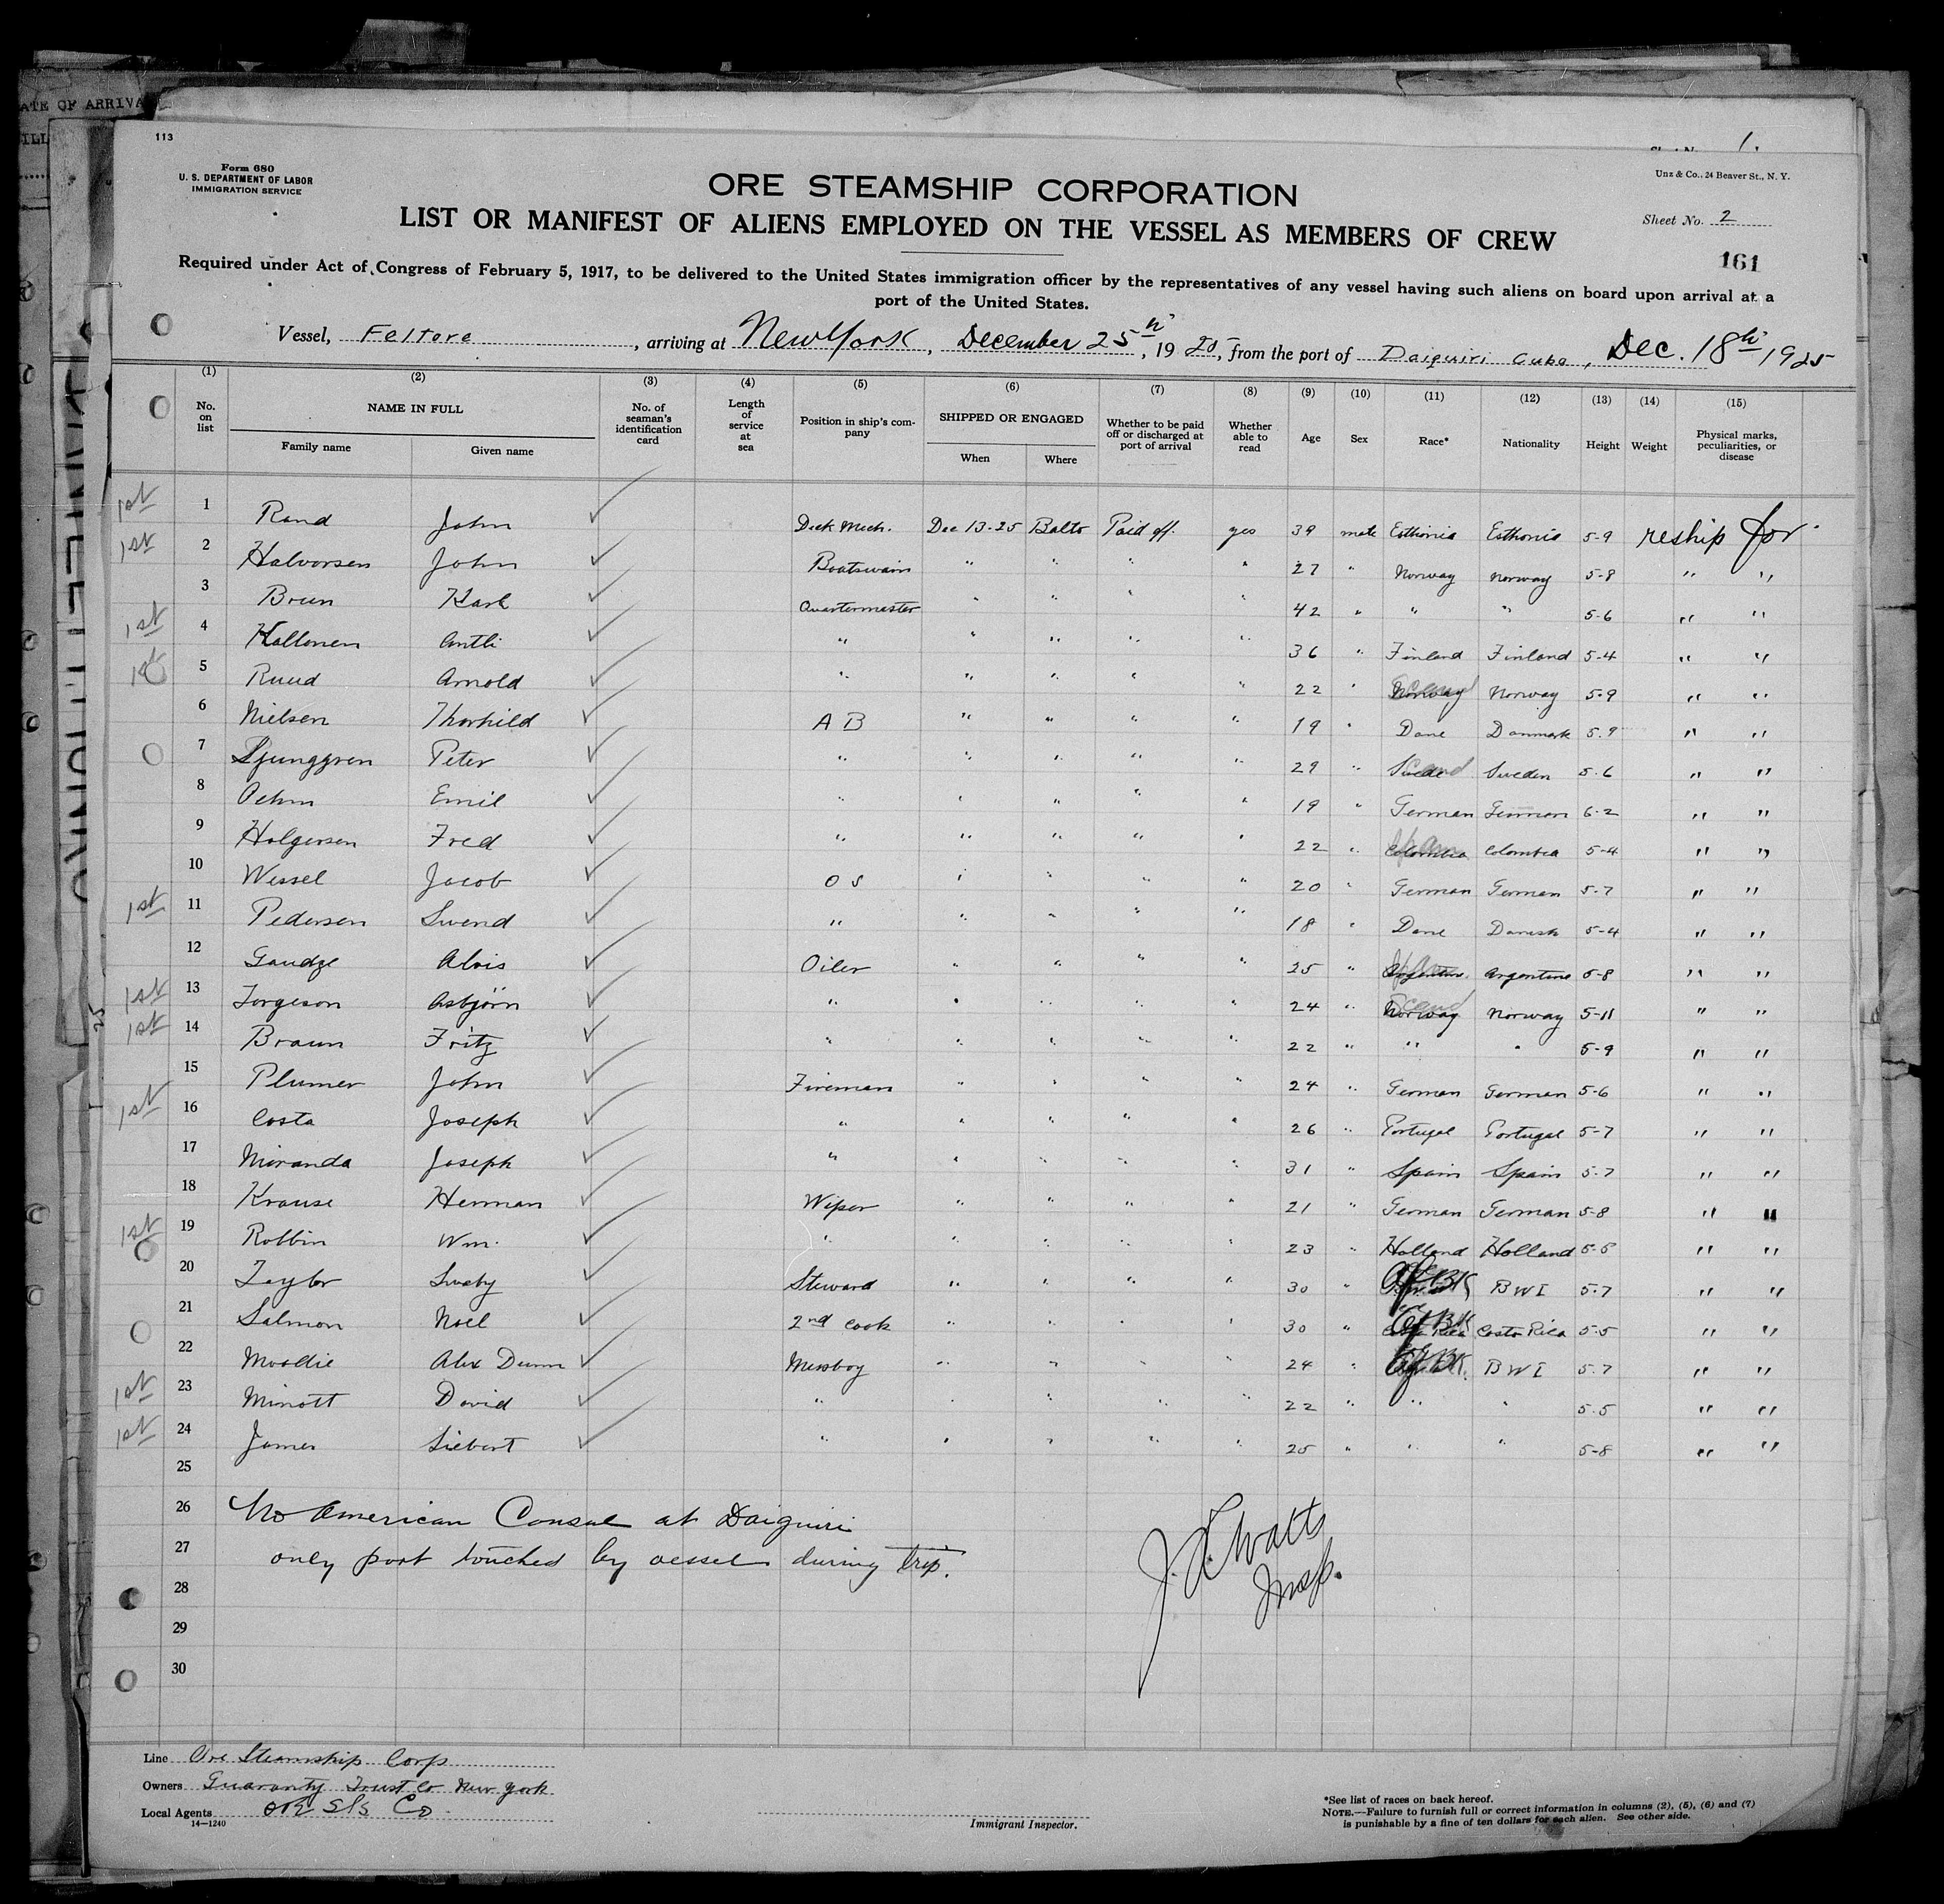 ATE OF ARRIVA
113
Form 680
U. S. DEPARTMENT OF LABOR
IMMIGRATION SERVICE
1
Unz & Co., 24 Beaver St., N. Y.
ORE STEAMSHIP CORPORATION
LIST OR MANIFEST OF ALIENS EMPLOYED ON THE VESSEL AS MEMBERS OF CREW
Sheet No. 2
161
Required under Act of Congress of February 5, 1917, to be delivered to the United States immigration officer by the representatives of any vessel having such aliens on board upon arrival at a
port of the United States.
Vessel, Feltore, arriving at New York, December 25th, 1925, from the port of Daiquiri Cuba, Dec. 18th 1925
(1) (2) (3) (4) (5) (6) (7) (8) (9) (10) (11) (12) (13) (14) (15)
No. on list NAME IN FULL Family name Given name No. of seaman's identification card Length of service at sea Position in ship's company SHIPPED OR ENGAGED When Where Whether to be paid off or discharged at port of arrival Whether able to read Age Sex Race* Nationality Height Weight Physical marks, peculiarities, or disease
1st 1 Rand John ✓ Deck Mech. Dec 13-25 Balto Paid off. yes 39 male Esthonia Esthonia 5-9 reship for
1st 2 Halvorsen John ✓ Boatswain " " " " 27 " Norway Norway 5-8 " "
3 Brun Karl ✓ Quartermaster " " " " 42 " " " 5-6 " "
1st 4 Kallonen Antti ✓ " " " " " 36 " Finland Finland 5-4 " "
1st 5 Ruud Arnold ✓ " " " " " 22 " Norway Norway 5-9 " "
6 Nielsen Thorkild ✓ A B " " " " 19 " Dane Danmark 5-9 " "
7 Ljunggren Peter ✓ " " " " " 29 " Swede Sweden 5-6 " "
8 Oehm Emil ✓ " " " " " 19 " German German 6-2 " "
9 Holgersen Fred ✓ " " " " " 22 " Colombia Colombia 5-4 " "
10 Wessel Jacob ✓ O S " " " " 20 " German German 5-7 " "
1st 11 Pedersen Svend ✓ " " " " " 18 " Dane Danish 5-4 " "
12 Gaudze Alois ✓ Oiler " " " " 25 " Argentine 5-8 " "
1st 13 Torgeson Asbjörn ✓ " " " " " 24 " Scand Norway Norway 5-11 " "
1st 14 Braun Fritz ✓ " " " " " 22 " " " 5-9 " "
15 Plumer John ✓ Fireman " " " " 24 " German German 5-6 " "
1st 16 Costa Joseph ✓ " " " " " 26 " Portugal Portugal 5-7 " "
17 Miranda Joseph ✓ " " " " " 31 " Spain Spain 5-7 " "
18 Krause Herman ✓ Wiper " " " " 21 " German German 5-8 " "
1st 19 Robbin Wm. ✓ " " " " " 23 " Holland Holland 5-5 " "
20 Taylor ✓ Steward " " " " 30 " Af Bk B W I 5-7 " "
21 Salmon Noel ✓ 2nd Cook " " " " 30 " Af Bk Costa Rica 5-5 " "
22 Moodie Alex Dunn ✓ Messboy " " " " 24 " Af Bk. B W I 5-7 " "
1st 23 Minott David ✓ " " " " " 22 " " " 5-5 " "
1st 24 James Siebert ✓ " " " " " 25 " " " 5-8 " "
25
26 No American Consul at Daiquiri
27 only port touched by vessel during trip.
J. L. Watts
Insp.
28
29
30
Line Ore Steamship Corp
Owners Guaranty Trust Co New York
Local Agents Ore S/S Co.
14—1240
Immigrant Inspector.
*See list of races on back hereof.
NOTE.—Failure to furnish full or correct information in columns (2), (5), (6) and (7)
is punishable by a fine of ten dollars for each alien. See other side.